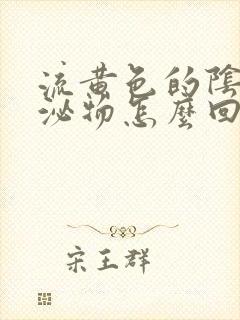 流黄色的陰
泌物怎麼回
宋王群